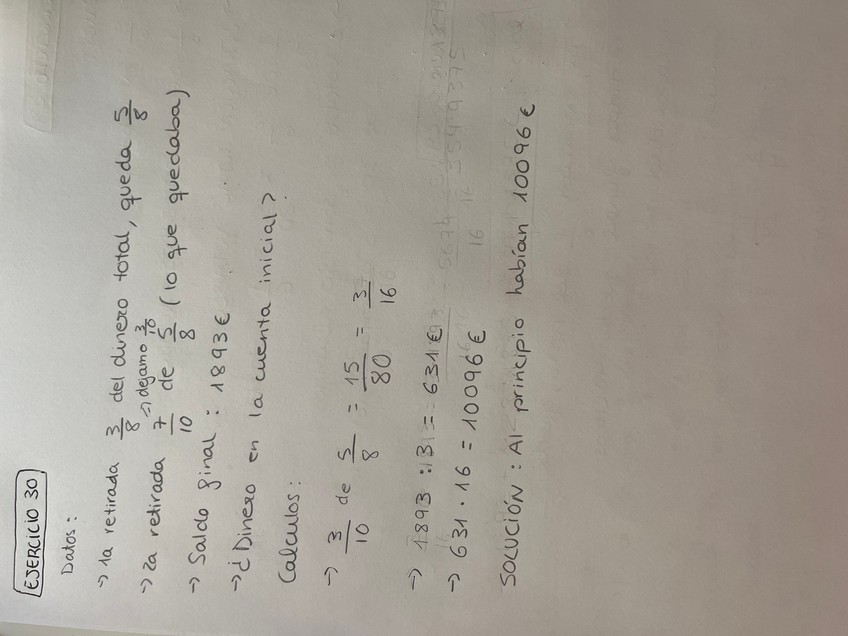 EJERCICIO 30
Datos:
→ 1a retirada 3/8 del dinero total, queda 5/8
→ dejamo 3/10
→ 2a retirada 7/10 de 5/8 (lo que quedaba)
→ Saldo final: 1893€
→ ¿Dinero en la cuenta inicial?
Calculos:
→ 3/10 de 5/8 = 15/80 = 3/16
→ 1893 : 3 = 631€
→ 631 · 16 = 10096€
SOLUCIÓN: Al principio habían 10096€